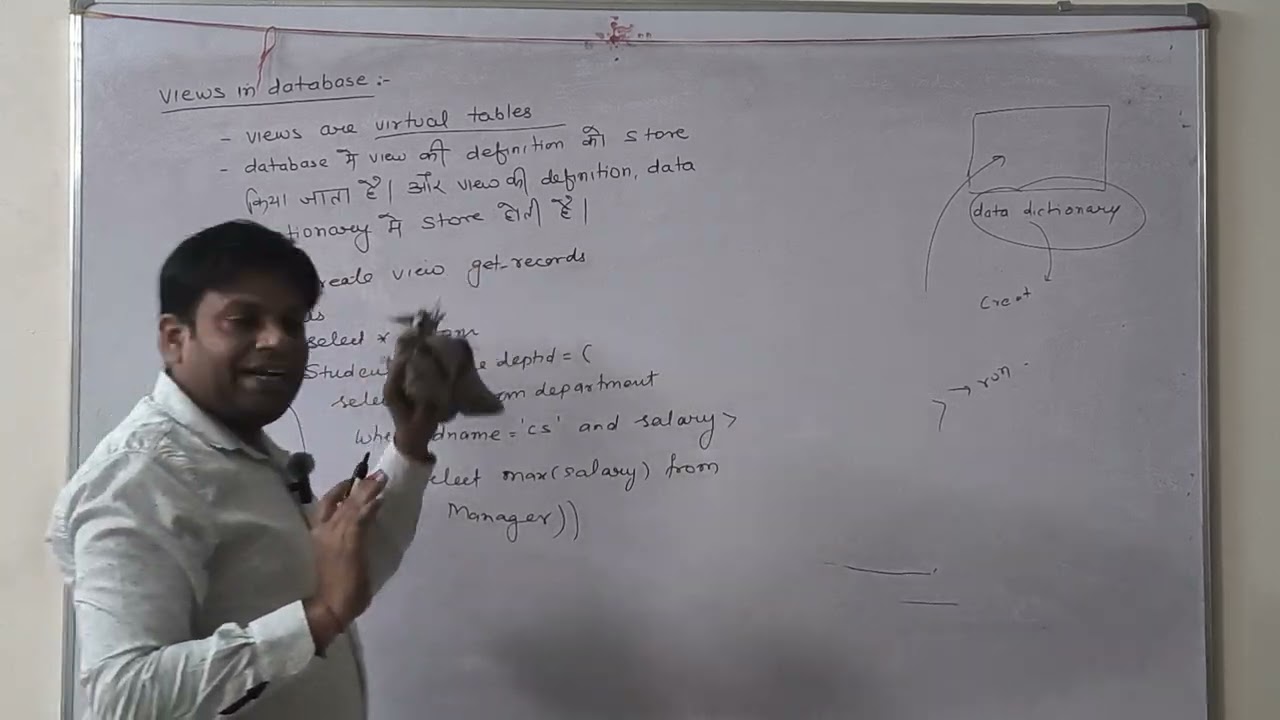 Views in database :-
- views are virtual tables
- database में view की definition को store
किया जाता है। और view की definition, data
tionary में store होती है।
reate view get-records
select *
Studen deptid = (
sele om department
whe dname = 'cs' and salary >
elect max(salary) from
Manager))
data dictionary
Creat
→ run